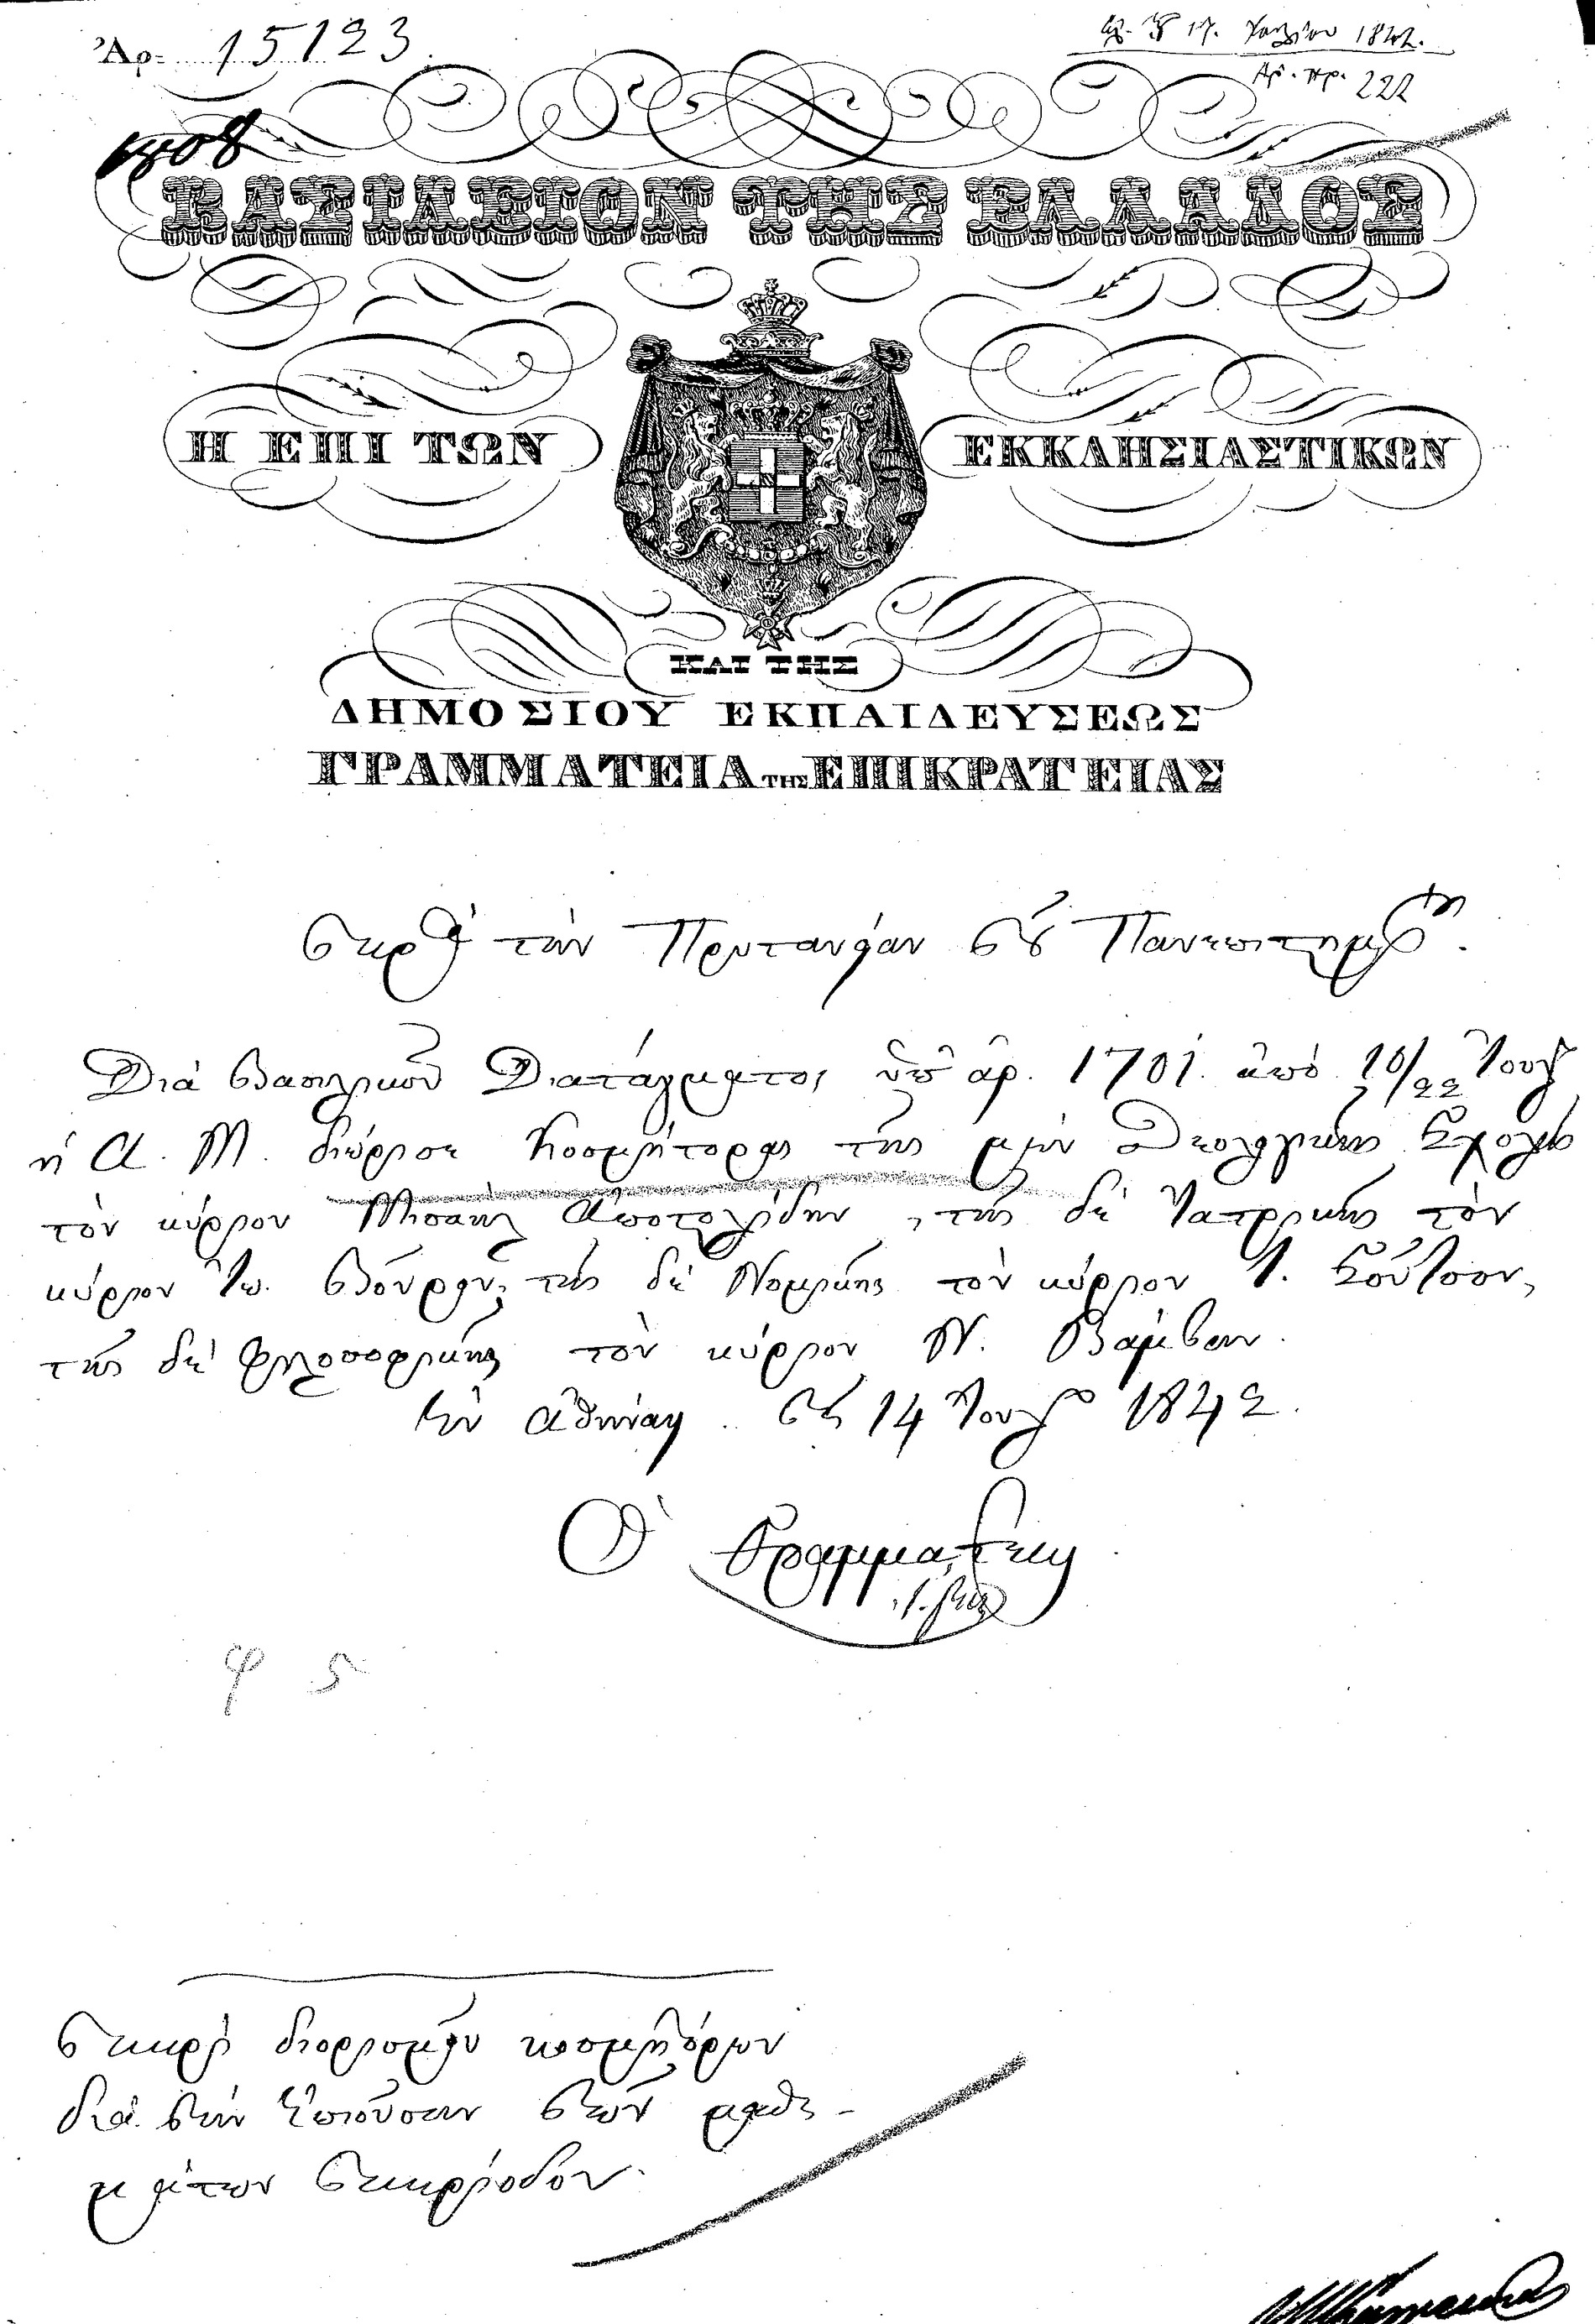 Ἀρ. 15123
17. Ἰουλίου 1842.
Ἀρ. πρ. 222
ΒΑΣΙΛΕΙΟΝ ΤΗΣ ΕΛΛΑΔΟΣ
Η ΕΠΙ ΤΩΝ ΕΚΚΛΗΣΙΑΣΤΙΚΩΝ
ΚΑΙ ΤΗΣ
ΔΗΜΟΣΙΟΥ ΕΚΠΑΙΔΕΥΣΕΩΣ
ΓΡΑΜΜΑΤΕΙΑ ΤΗΣ ΕΠΙΚΡΑΤΕΙΑΣ
Πρὸς τὴν Πρυτανείαν τοῦ Πανεπιστημίου.
Διὰ Βασιλικοῦ Διατάγματος ὑπ' ἀρ. 1701. ἀπὸ 10/22 Ἰουλ
ἡ Α. Μ. διώρισε Κοσμήτορας τῆς μὲν Θεολογικῆς Σχολῆς
τὸν κύριον Μισαὴλ Ἀποστολίδην, τῆς δὲ Ἰατρικῆς τὸν
κύριον Ἰω. Βούρον, τῆς δὲ Νομικῆς τὸν κύριον Ι. Σοῦτσον,
τῆς δὲ Φιλοσοφικῆς τὸν κύριον Ν. Βάμβαν.
Ἐν Ἀθήναις τῇ 14 Ἰουλίου 1842.
Ὁ Γραμματεὺς
φ 5
Περὶ διορισμοῦ κοσμητόρων
διὰ τὴν ἐπιοῦσαν τῶν μαθη-
μάτων περίοδον.